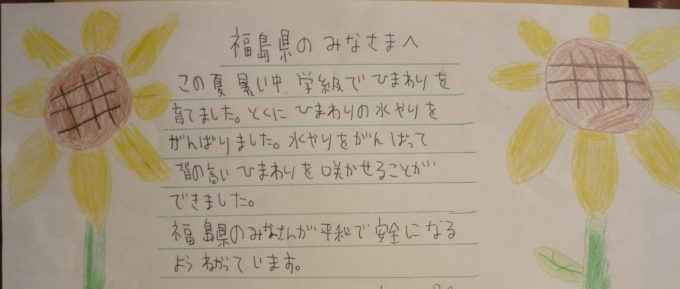 福島県のみなさまへ
この夏暑い中、学級でひまわりを
育てました。とくにひまわりの水やりを
がんばりました。水やりをがんばって
背の高いひまわりを咲かせることが
できました。
福島県のみなさんが平和で安全になる
ようねがっています。